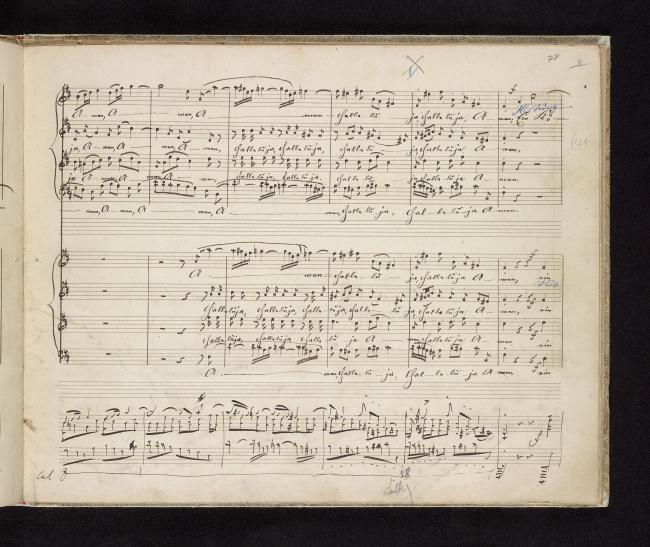 78
A - men, A - men, A - men Halle lu ja, Halleluja A - men,
ja, A - men, A men, A Halleluja, Halleluja, Halle lu ja, Halleluja A men.
ja A - men, A men, A Halleluja, Halleluja. Halle lu ja, Halleluja A men.
men, A - men, A men, A men, Halle lu ja, Hal - le - lu - ja A - men.
A men Halle lu ja, Halleluja A - men, ein
Halleluja, Halleluja, Halle luja, Halle lu ja, Halleluja A men,
Halleluja, Halleluja, Halle lu ja A men Halleluja A men, ein
A men, Halle lu - ja, Hal - le - lu - ja A men ein
8